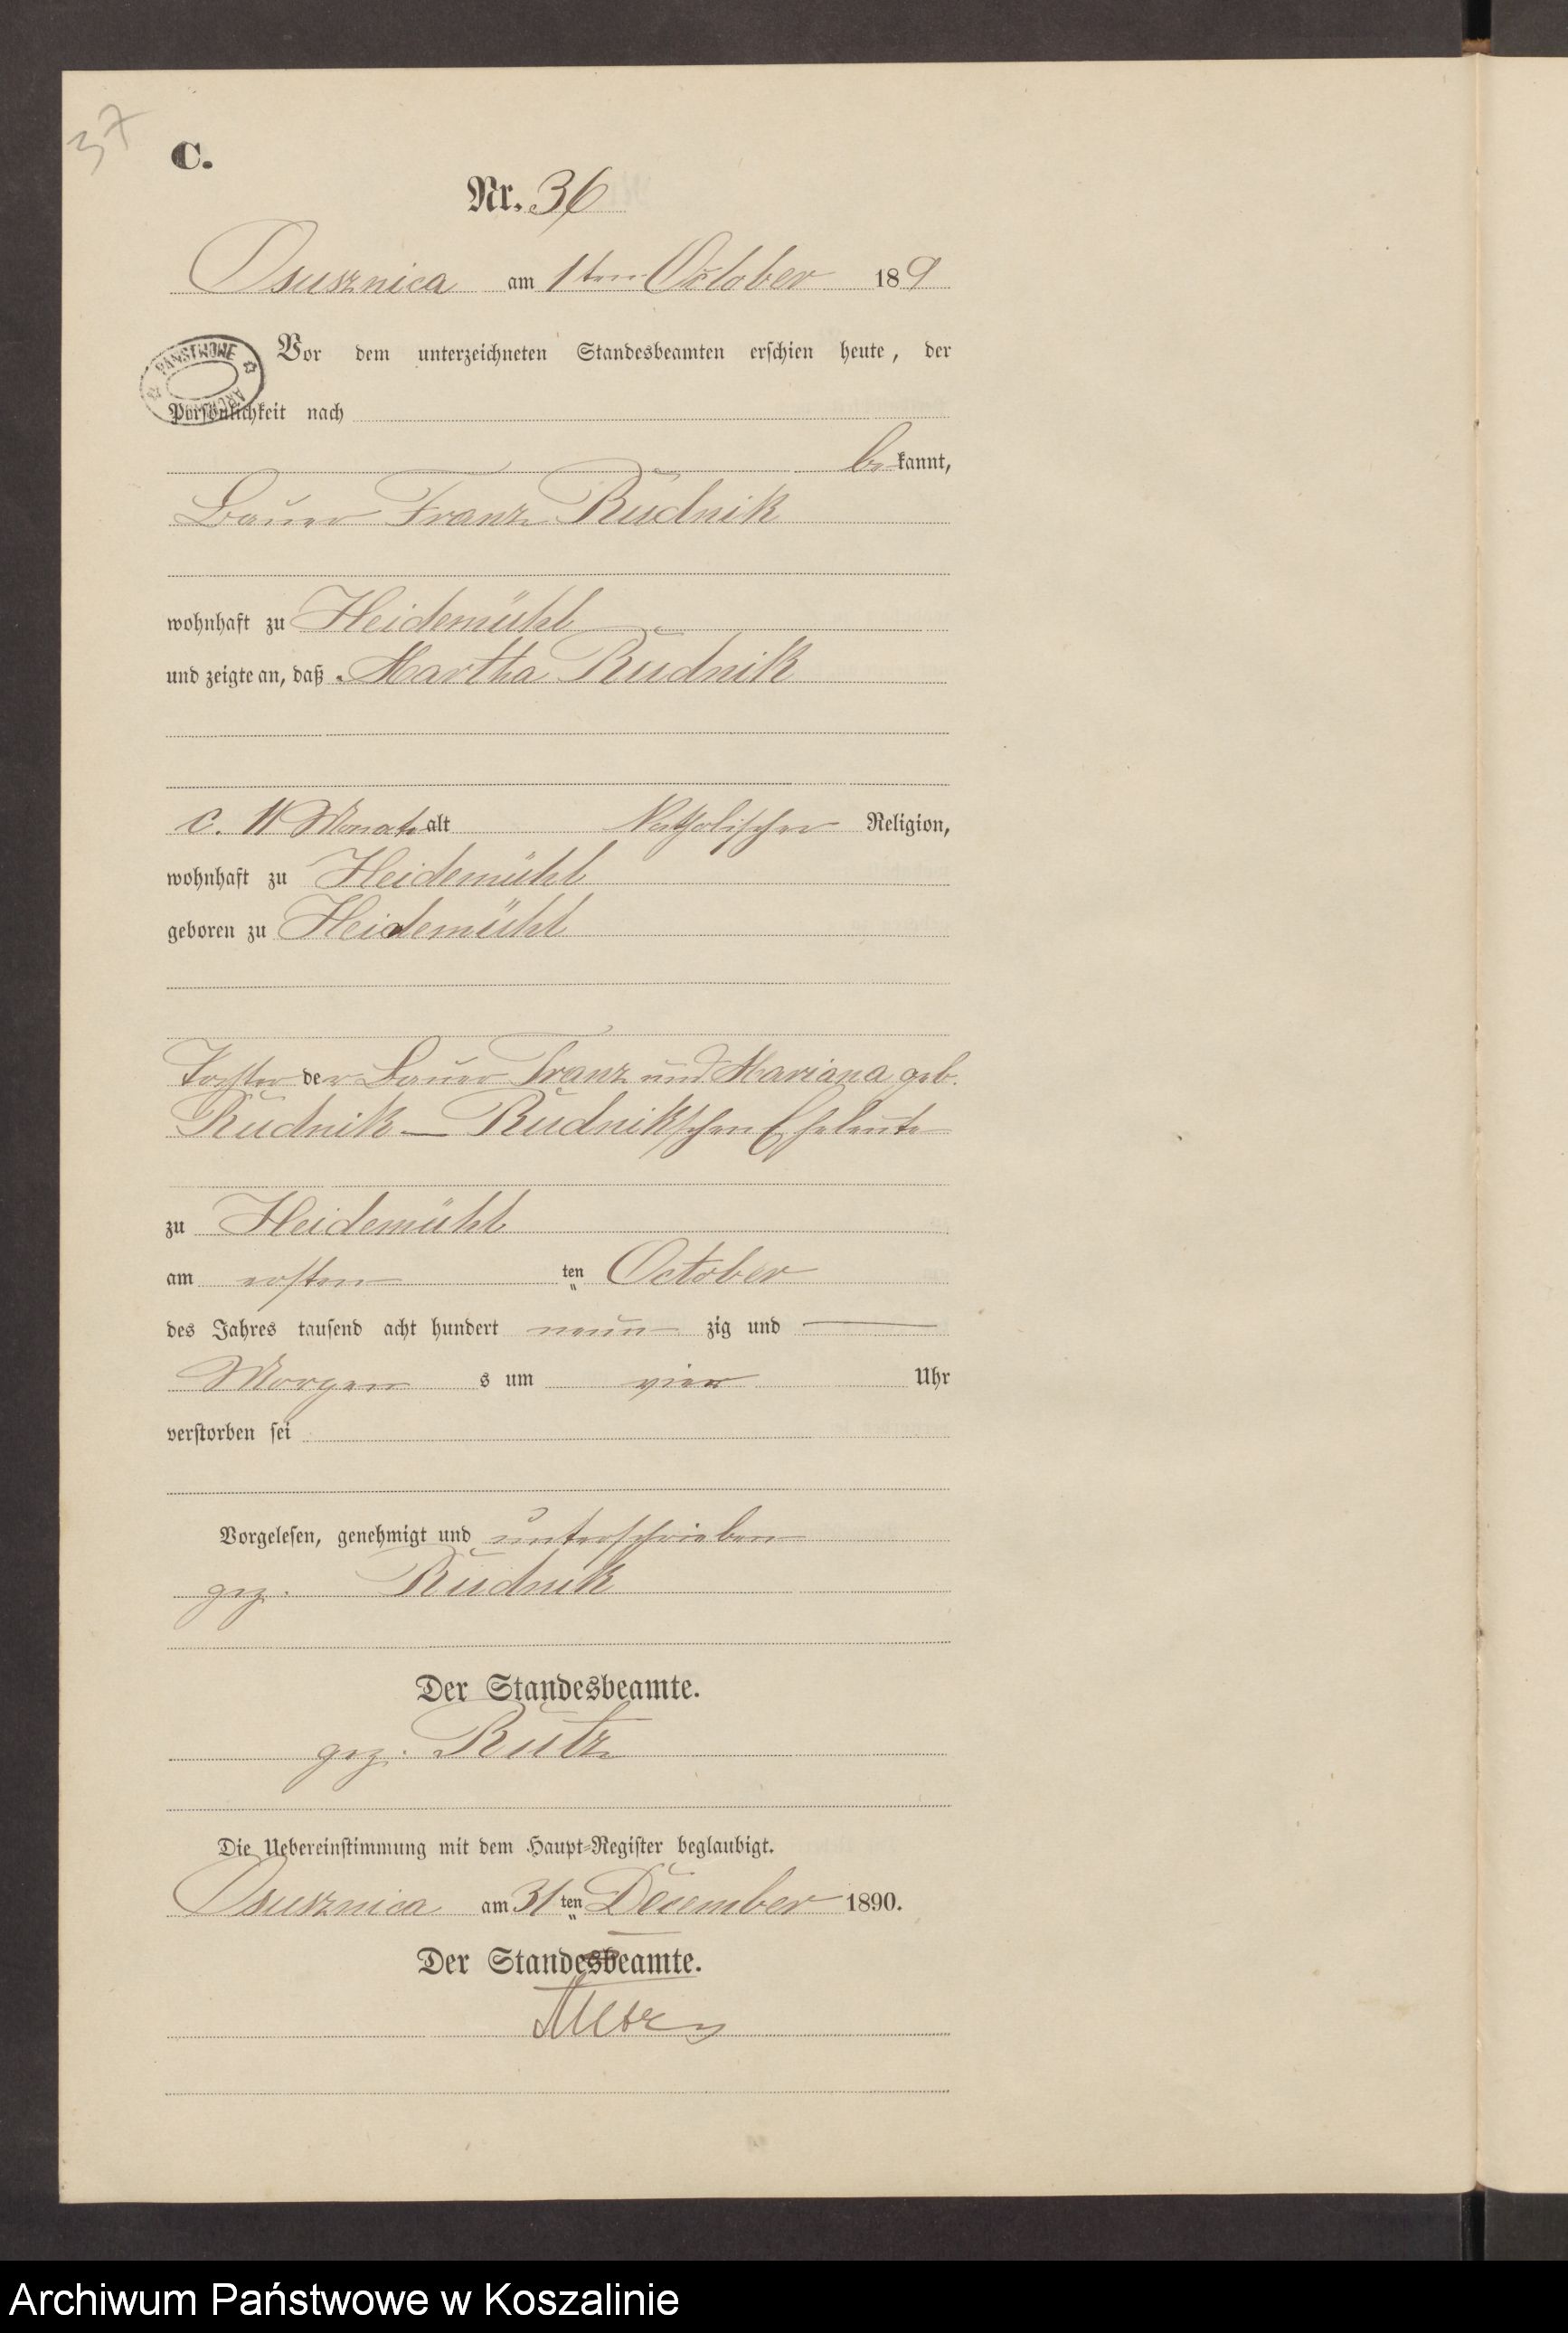 37
C.
Nr. 36
Osusznica am 1ten October 189
PAŃSTWOWE
Vor dem unterzeichneten Standesbeamten erschien heute, der
Persönlichkeit nach
be kannt,
Bauer Franz Rudnik
wohnhaft zu Heidemühl
und zeigte an, daß Martha Rudnik
c. 11 Monate alt Katholischer Religion,
wohnhaft zu Heidemühl
geboren zu Heidemühl
Tochter der Bauer Franz und Mariana geb.
Rudnik — Rudnikschen Eheleute
zu Heidemühl
am ersten ten October
des Jahres tausend acht hundert neun zig und —
Morgen s um vier Uhr
verstorben sei
Vorgelesen, genehmigt und unterschrieben
gez. Rudnik
Der Standesbeamte.
gez. Rutz
Die Uebereinstimmung mit dem Haupt-Register beglaubigt.
Osusznica am 31 ten December 1890.
Der Standesbeamte.
Archiwum Państwowe w Koszalinie